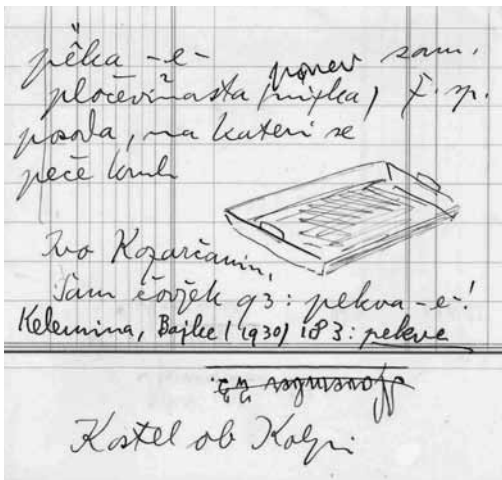 pêka -e- sam.
ponev
pločevinasta (nizka) ž. sp.
posoda, na kateri se
peče kruh
Ivo Kozarčanin,
Sam čovjek 93: pekva -e-!
Kelemina, Bajke (1930) 183: pekve
Kostel ob Kolpi